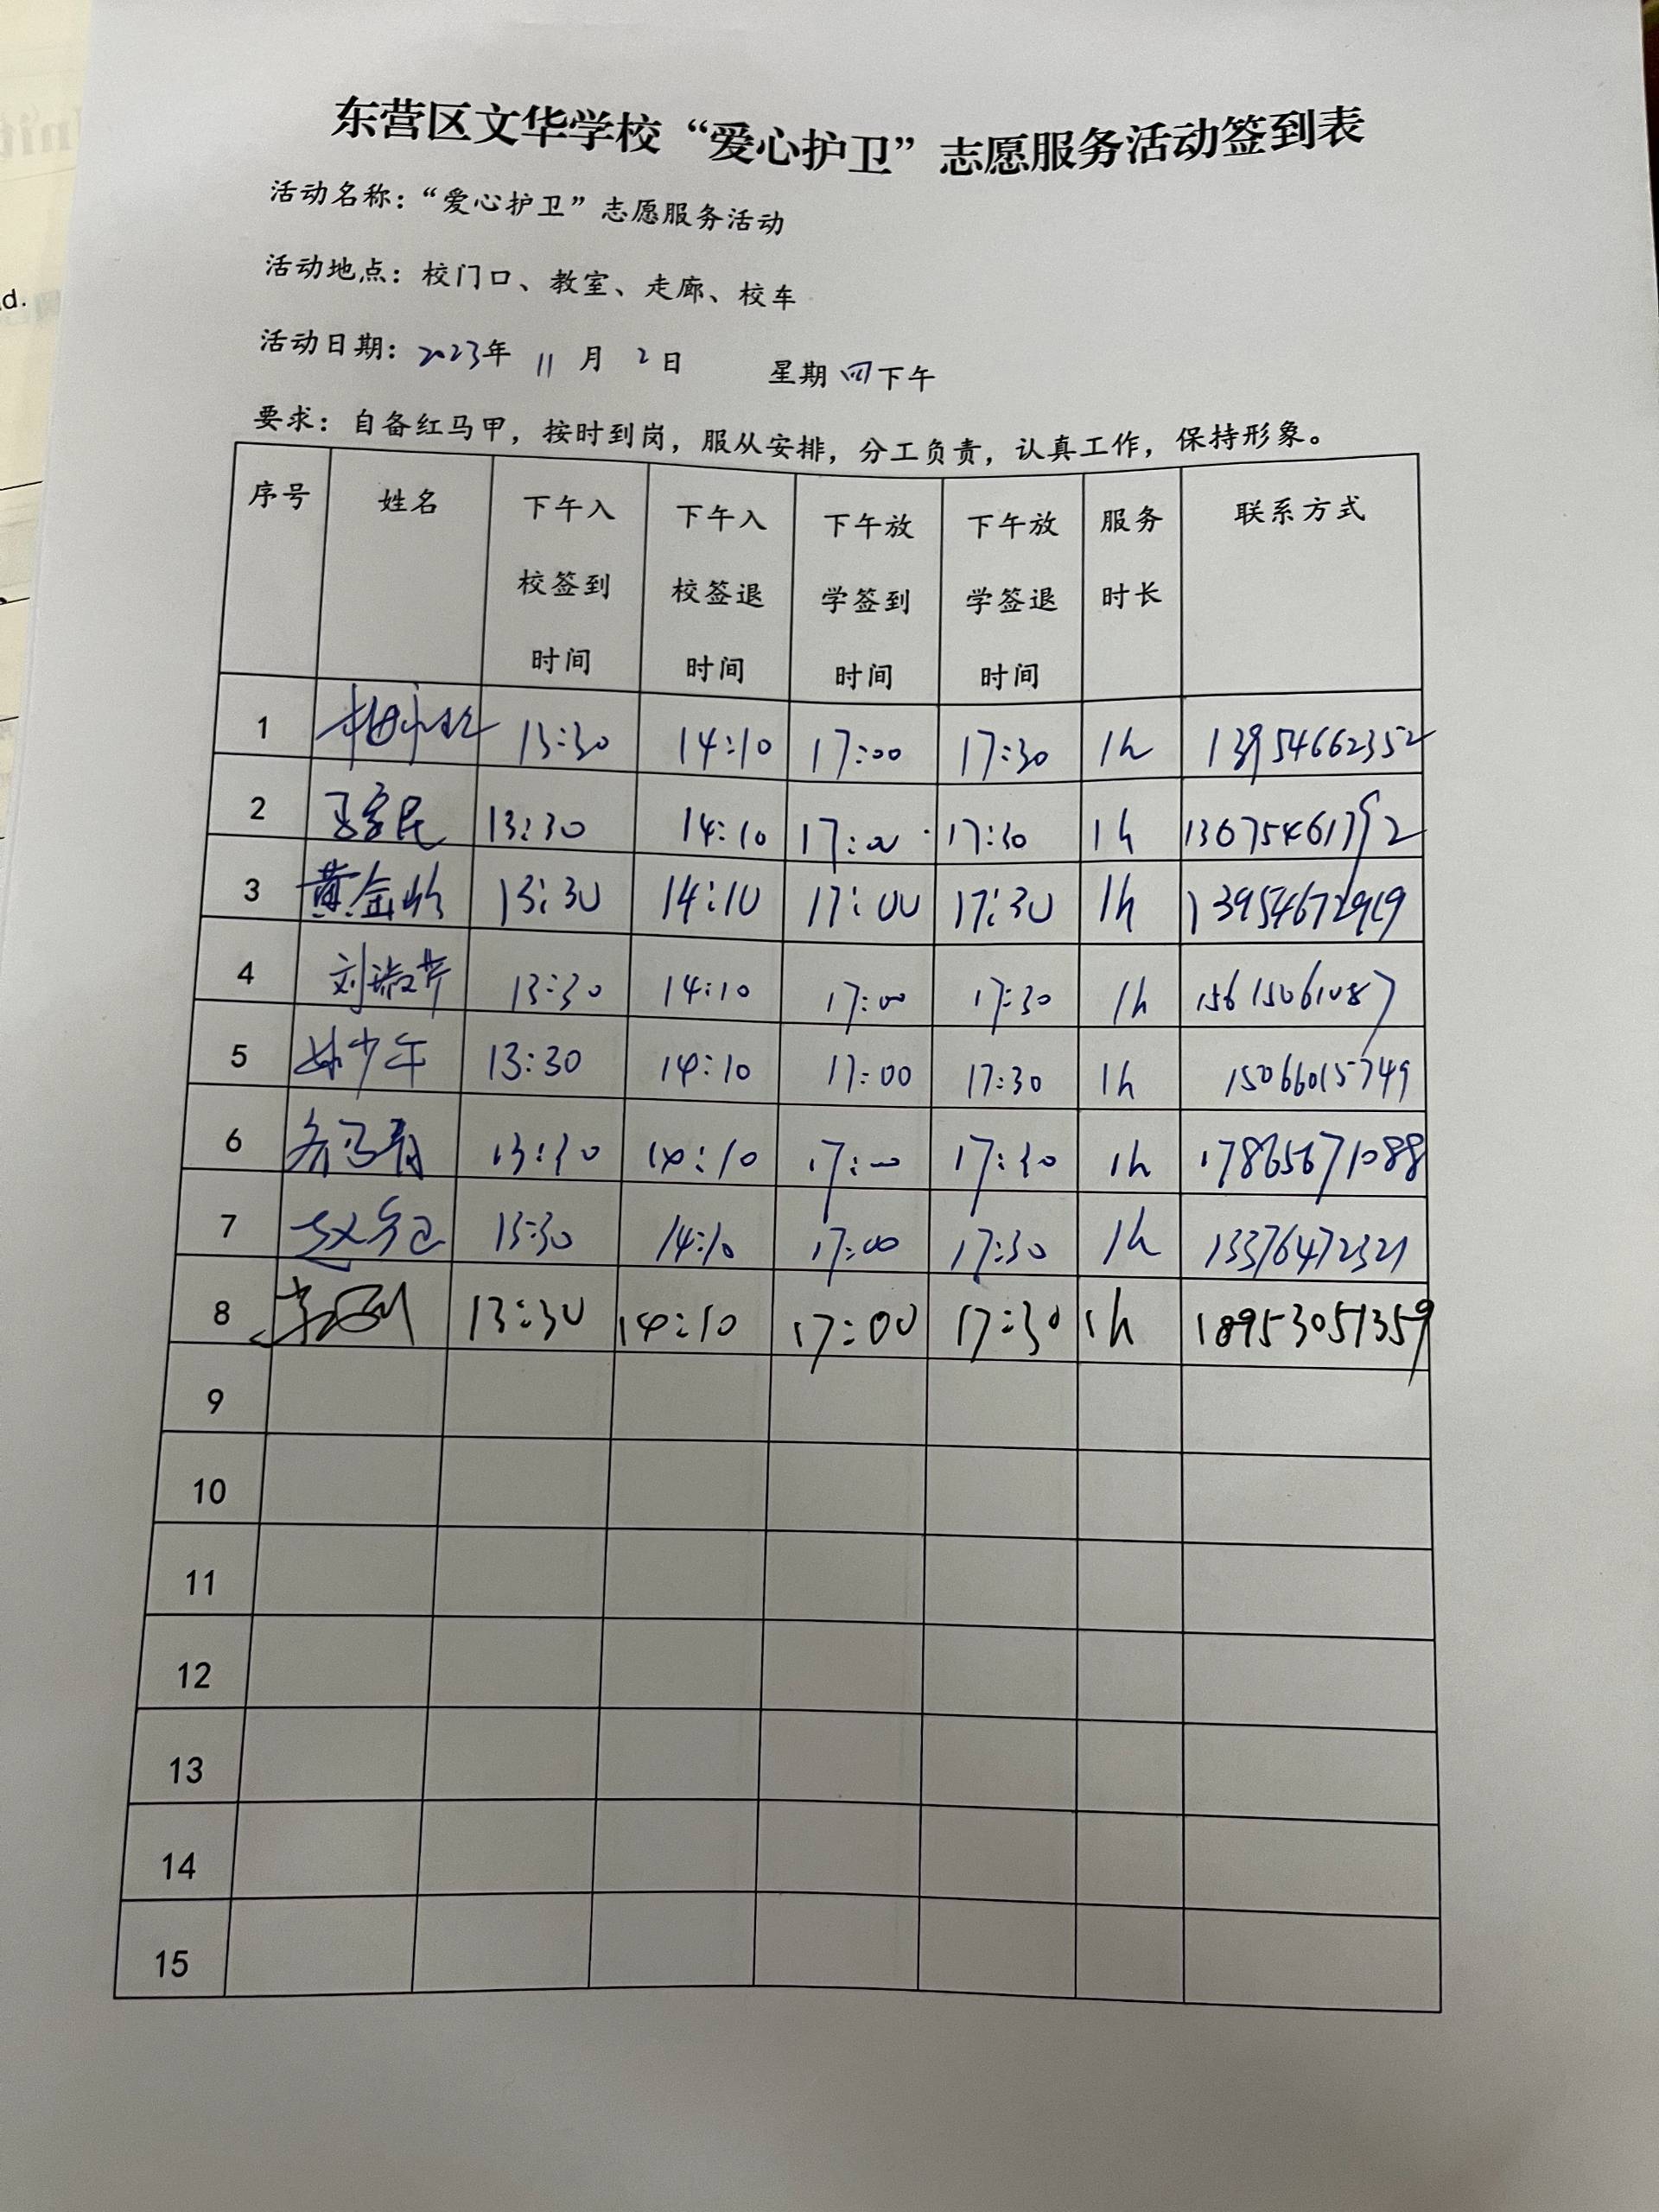 东营区文华学校“爱心护卫”志愿服务活动签到表
活动名称：“爱心护卫”志愿服务活动
活动地点：校门口、教室、走廊、校车
活动日期：2023年 11 月 2日 星期四下午
要求：自备红马甲，按时到岗，服从安排，分工负责，认真工作，保持形象。
序号 姓名 下午入校签到时间 下午入校签退时间 下午放学签到时间 下午放学签退时间 服务时长 联系方式
1 13:30 14:10 17:00 17:30 1h 13954662352
2 13:30 14:10 17:00 17:30 1h 13675461792
3 13:30 14:10 17:00 17:30 1h
4 刘淑芹 13:30 14:10 17:00 17:30 1h 15615061087
5 13:30 14:10 17:00 17:30 1h 15066015749
6 13:30 14:10 17:00 17:30 1h 17865671088
7 13:30 14:10 17:00 17:30 1h 13376472321
8 13:30 14:10 17:00 17:30 1h 18953051359
9
10
11
12
13
14
15